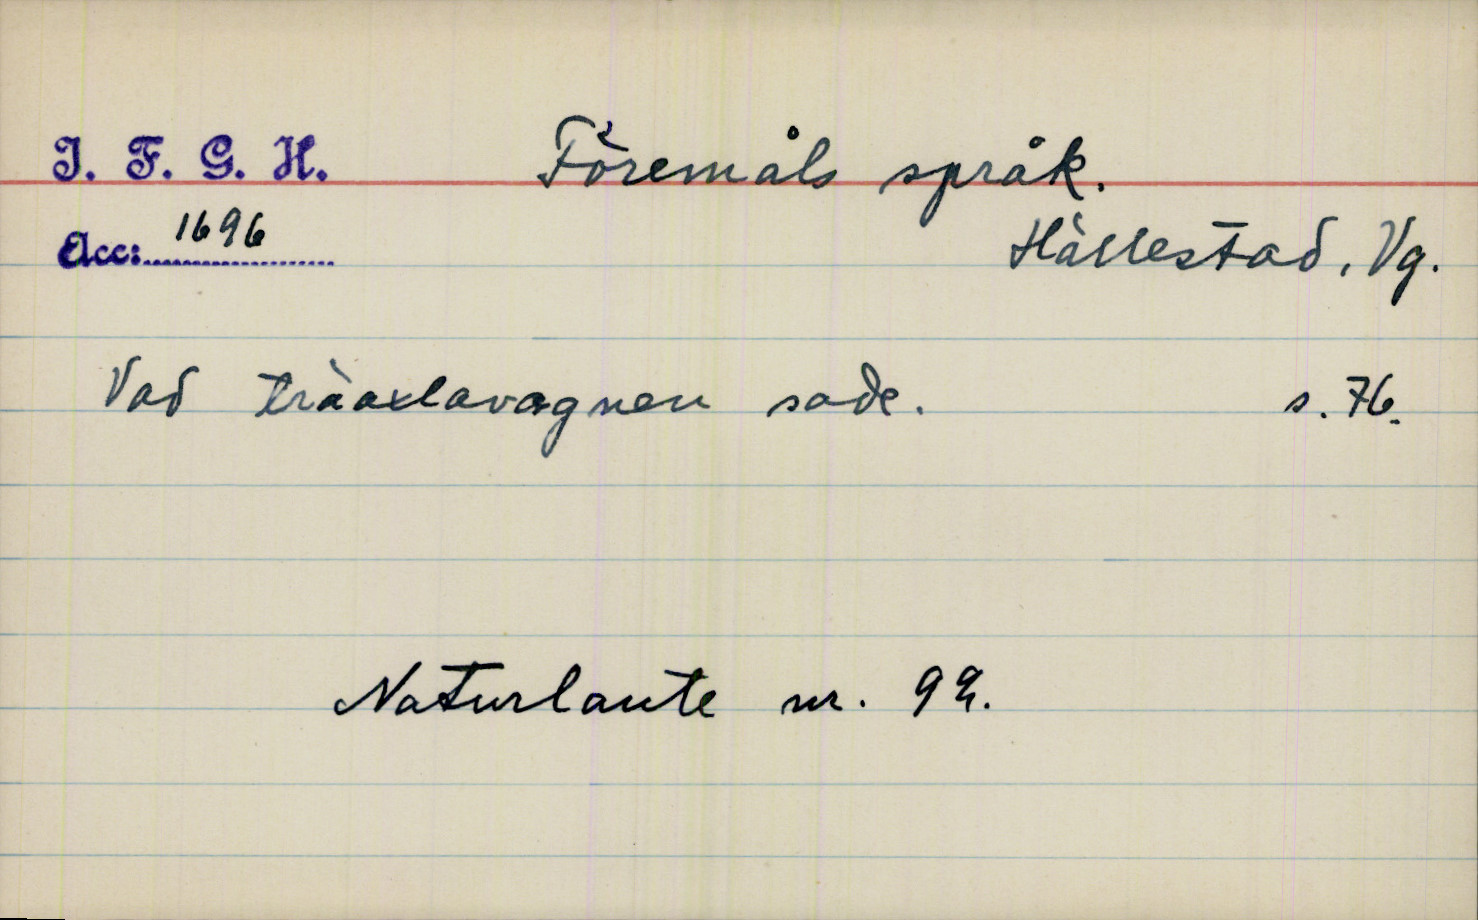 I. F. G. H.
Föremåls språk.
Acc: 1696
Hällestad, Vg.
Vad träaxlavagnen sade. s. 76.
Naturlaute nr. 99.